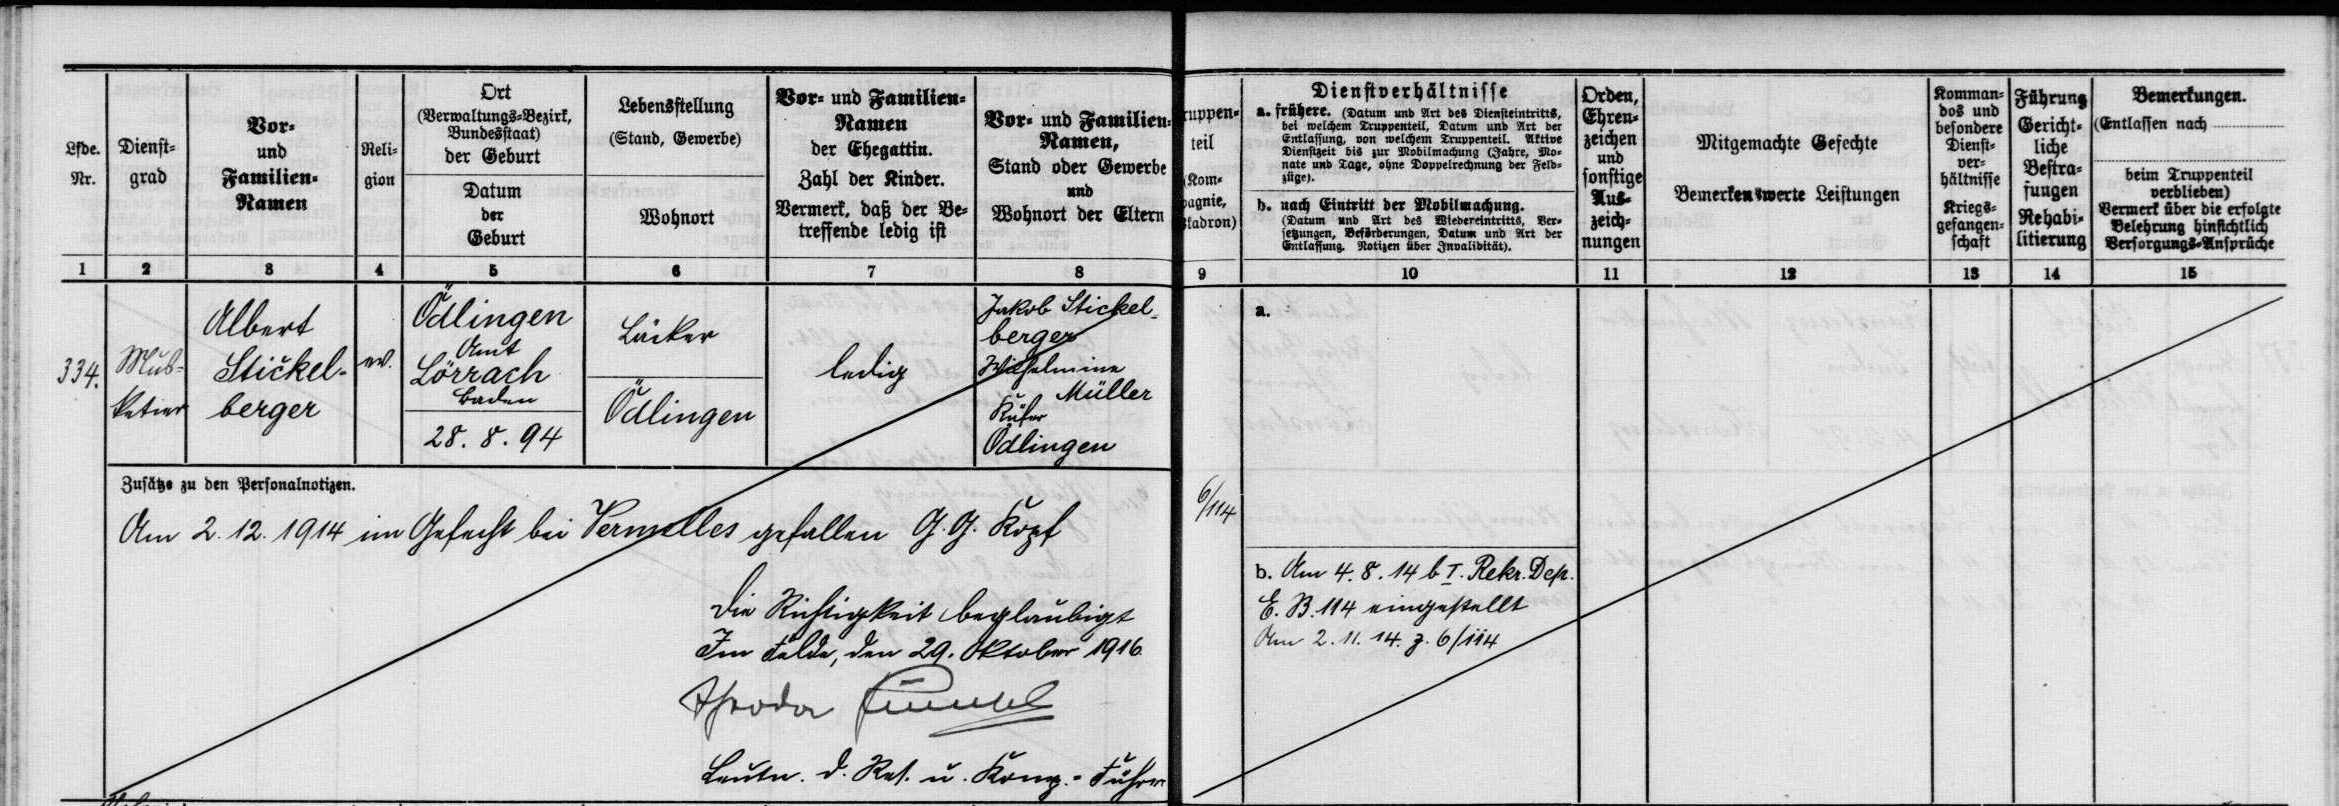 Lfde.
Nr.
Dienst-
grad
Vor-
und
Familien-
Namen
Reli-
gion
Ort
(Verwaltungs-Bezirk,
Bundesstaat)
der Geburt
Datum
der
Geburt
Lebensstellung
(Stand, Gewerbe)
Wohnort
Vor- und Familien-
Namen
der Ehegattin.
Zahl der Kinder.
Vermerk, daß der Be-
treffende ledig ist
Vor- und Familien-
Namen,
Stand oder Gewerbe
und
Wohnort der Eltern
ruppen-
teil
(Kom-
pagnie,
Eskadron)
Dienstverhältnisse
a. frühere. (Datum und Art des Diensteintritts,
bei welchem Truppenteil, Datum und Art der
Entlassung, von welchem Truppenteil. Aktive
Dienstzeit bis zur Mobilmachung (Jahre, Mo-
nate und Tage, ohne Doppelrechnung der Feld-
züge).
b. nach Eintritt der Mobilmachung.
(Datum und Art des Wiedereintritts, Ver-
setzungen, Beförderungen, Datum und Art der
Entlassung. Notizen über Invalidität).
Orden,
Ehren-
zeichen
und
sonstige
Aus-
zeich-
nungen
Mitgemachte Gefechte
Bemerkenswerte Leistungen
Komman-
dos und
besondere
Dienst-
ver-
hältnisse
Kriegs-
gefangen-
schaft
Führung
Gericht-
liche
Bestra-
fungen
Rehabi-
litierung
Bemerkungen.
(Entlassen nach
beim Truppenteil
verblieben)
Vermerk über die erfolgte
Belehrung hinsichtlich
Versorgungs-Ansprüche
1 2 3 4 5 6 7 8 9 10 11 12 13 14 15
334.
Mus-
ketier
Albert
Stickel-
berger
ev.
Ödlingen
Amt
Lörrach
Baden
28. 8. 94
Bäcker
Ödlingen
ledig
Jakob Stickel-
berger
Wilhelmine
Müller
Küfer
Ödlingen
6/114
a.
Zusätze zu den Personalnotizen.
Am 2. 12. 1914 im Gefecht bei Vermelles gefallen G. G. Kopf
Die Richtigkeit beglaubigt
Im Felde, den 29. Oktober 1916
Leutn. d. Res. u. Komp.-Führer
b. Am 4. 8. 14 b. I. Rekr. Dep.
E. B. 114 eingestellt
Am 2. 11. 14. z. 6/114